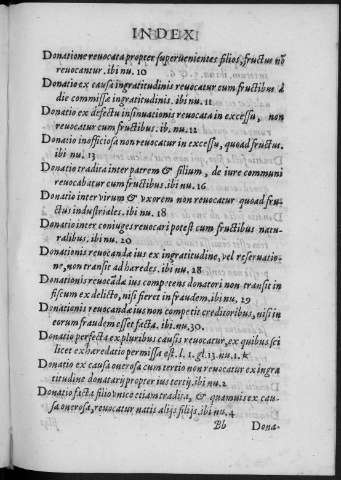 INDEX
Donatione reuocata propter superuenientes filios, fructus nō
reuocantur. ibi nu. 10
Donatio ex causa ingratitudinis reuocatur cum fructibus à
die commissæ ingratitudinis. ibi nu. 11
Donatio ex defectu insinuationis reuocata in excessu, non
reuocatur cum fructibus. ib. nu. 12
Donatio inofficiosa non reuocatur in excessu, quoad fructus.
ibi nu. 13
Donatio tradita inter patrem & filium, de iure communi
reuocabatur cum fructibus. ibi nu. 16
Donatio inter virum & vxorem non reuocatur quoad fru-
ctus industriales. ibi nu. 18
Donatio inter coniuges reuocari potest cum fructibus natu-
ralibus. ibi nu. 20
Donationis reuocandæ ius ex ingratitudine, vel reseruatio-
ne, non transit ad hæredes. ibi nu. 28
Donationis reuocādæ ius competens donatori non transit in
fiscum ex delicto, nisi fieret in fraudem. ibi nu. 29
Donationis reuocandæ ius non competit creditoribus, nisi in
eorum fraudem esset facta. ibi. nu. 30.
Donatio perfecta ex pluribus causis reuocatur, ex quibus sci
licet exhæredatio permissa est. l. 1. gl. 13. nu. 1.
Donatio ex causa onerosa cum tertio non reuocatur ex ingra
titudine donatarij propter ius tertij. ibi nu. 2
Donatio facta filio vnico etiam tradita, & quamuis ex cau-
sa onerosa, reuocatur natis alijs filijs. ibi nu. 4
Bb Dona-